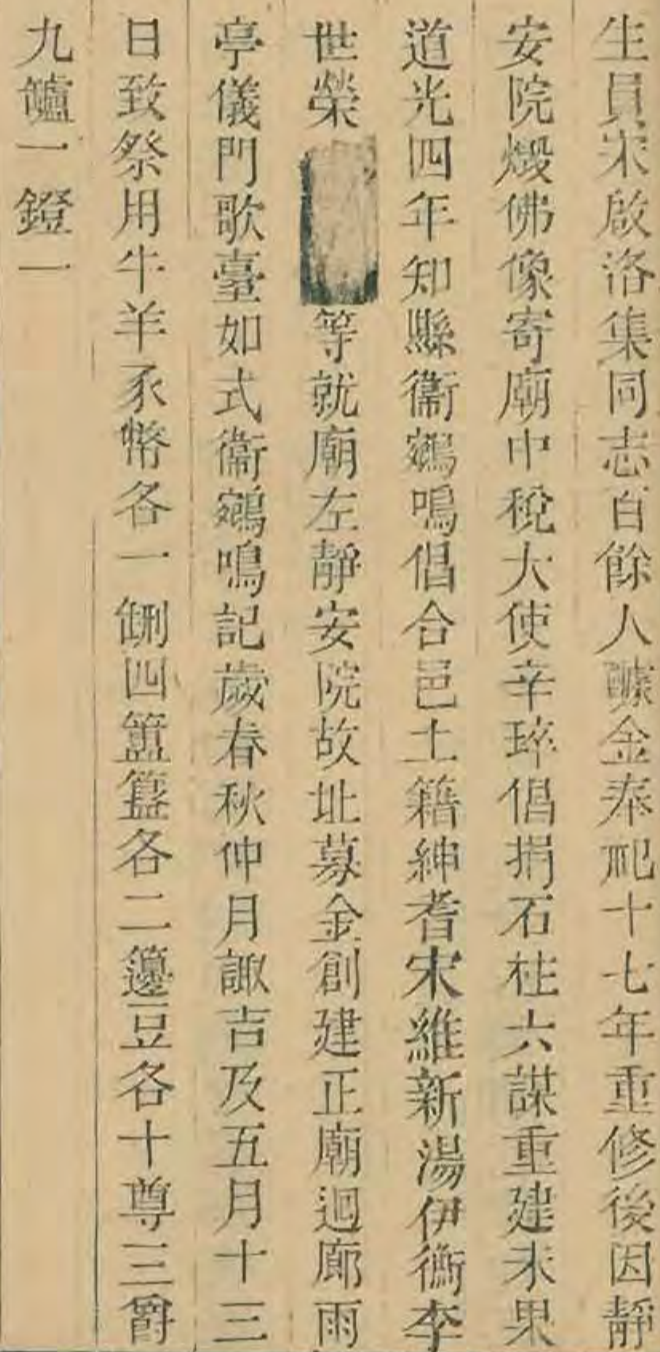 生員宋啟洛集同志百餘人醵金奉祀十七年重修後因靜
安院燬佛像寄廟中稅大使辛琜倡捐石柱六謀重建未果
道光四年知縣衞鵷鳴倡合邑士籍紳耆宋維新湯伊衡李
世榮等就廟左靜安院故址募金創建正廟迴廊雨
亭儀門歌臺如式衞鵷鳴記歲春秋仲月諏吉及五月十三
日致祭用牛羊豕幣各一鉶四簠簋各二籩豆各十尊三爵
九罏一鐙一